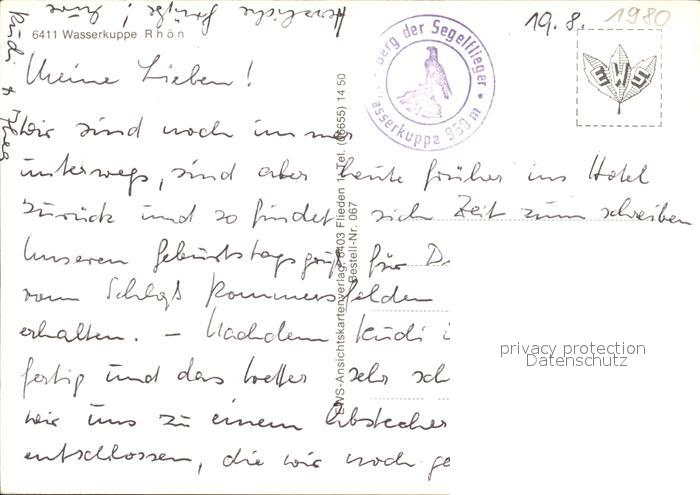 Herzliche Grüße! Eure
Rudi +
6411 Wasserkuppe Rhön
19.8. 1980
Berg der Segelflieger
Wasserkuppe 950 m
Meine Lieben!
Wir sind noch immer
unterwegs, sind aber heute früher ins Hotel
zurück und so findet sich Zeit zum schreiben
Unseren Geburtstagsgruß für D
vom Schloß Pommersfelden
erhalten. - Nachdem Rudi
fertig und das Wetter sehr sch
wir uns zu einem Abstecher
entschlossen, die wir noch ge
EWS-Ansichtskartenverlag, 6403 Flieden 1, Tel. (06655) 14 50
Bestell-Nr. 067
privacy protection
Datenschutz